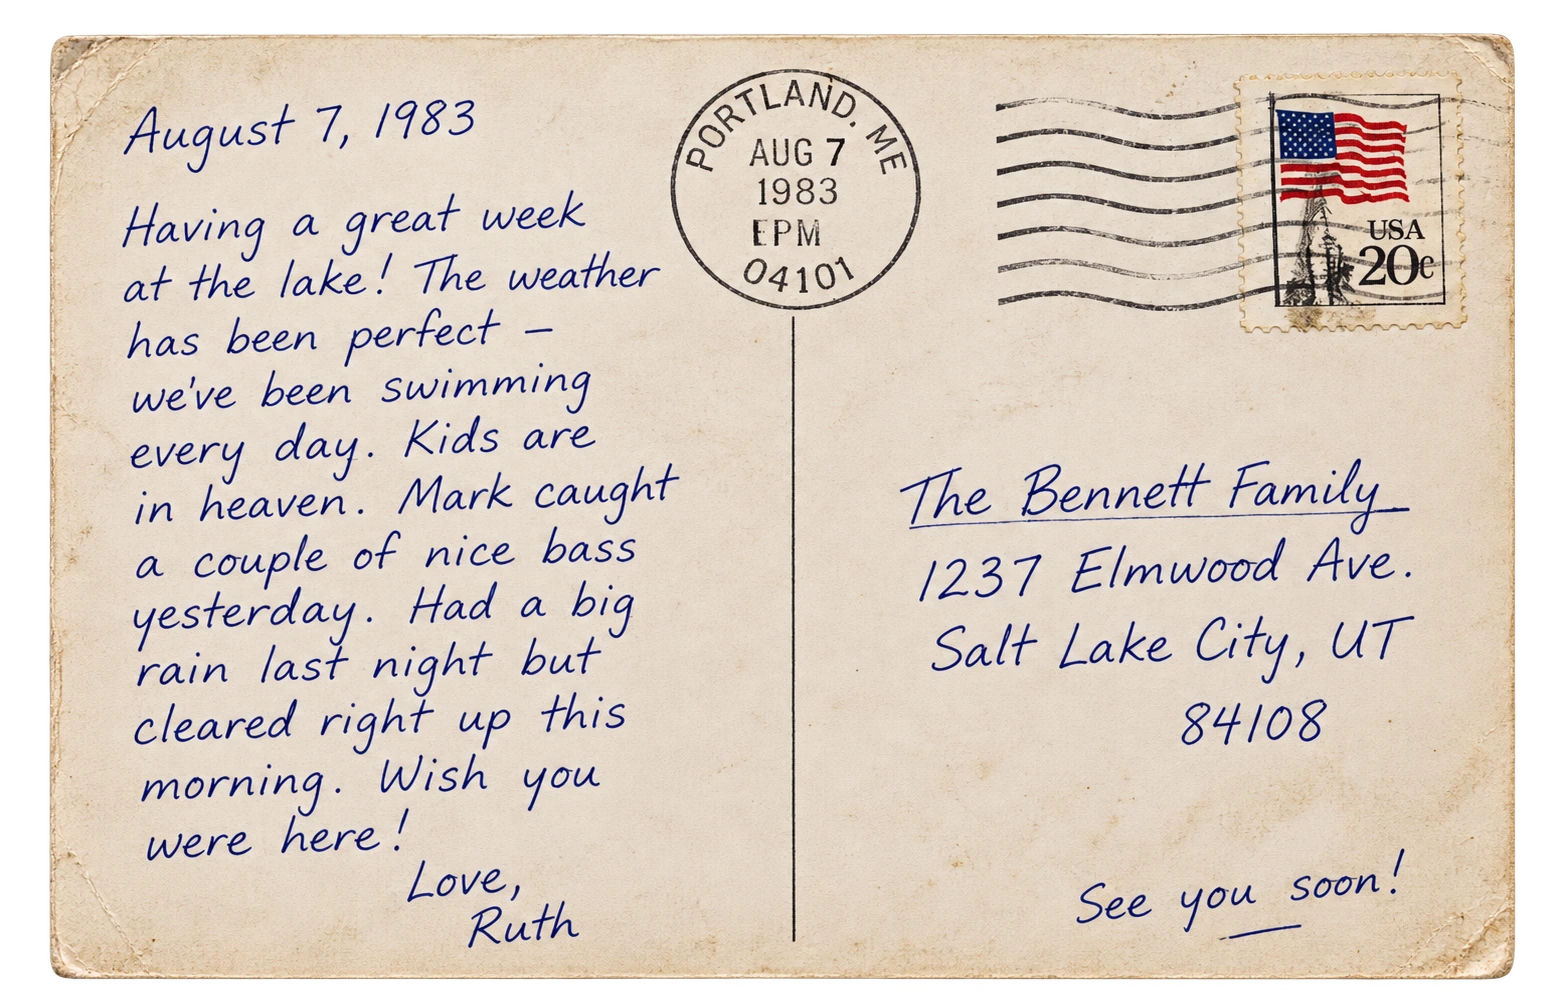 August 7, 1983
Having a great week
at the lake! The weather
has been perfect –
we've been swimming
every day. Kids are
in heaven. Mark caught
a couple of nice bass
yesterday. Had a big
rain last night but
cleared right up this
morning. Wish you
were here!
Love,
Ruth
PORTLAND. ME
AUG 7
1983
EPM
04101
USA
20c
The Bennett Family
1237 Elmwood Ave.
Salt Lake City, UT
84108
See you soon!